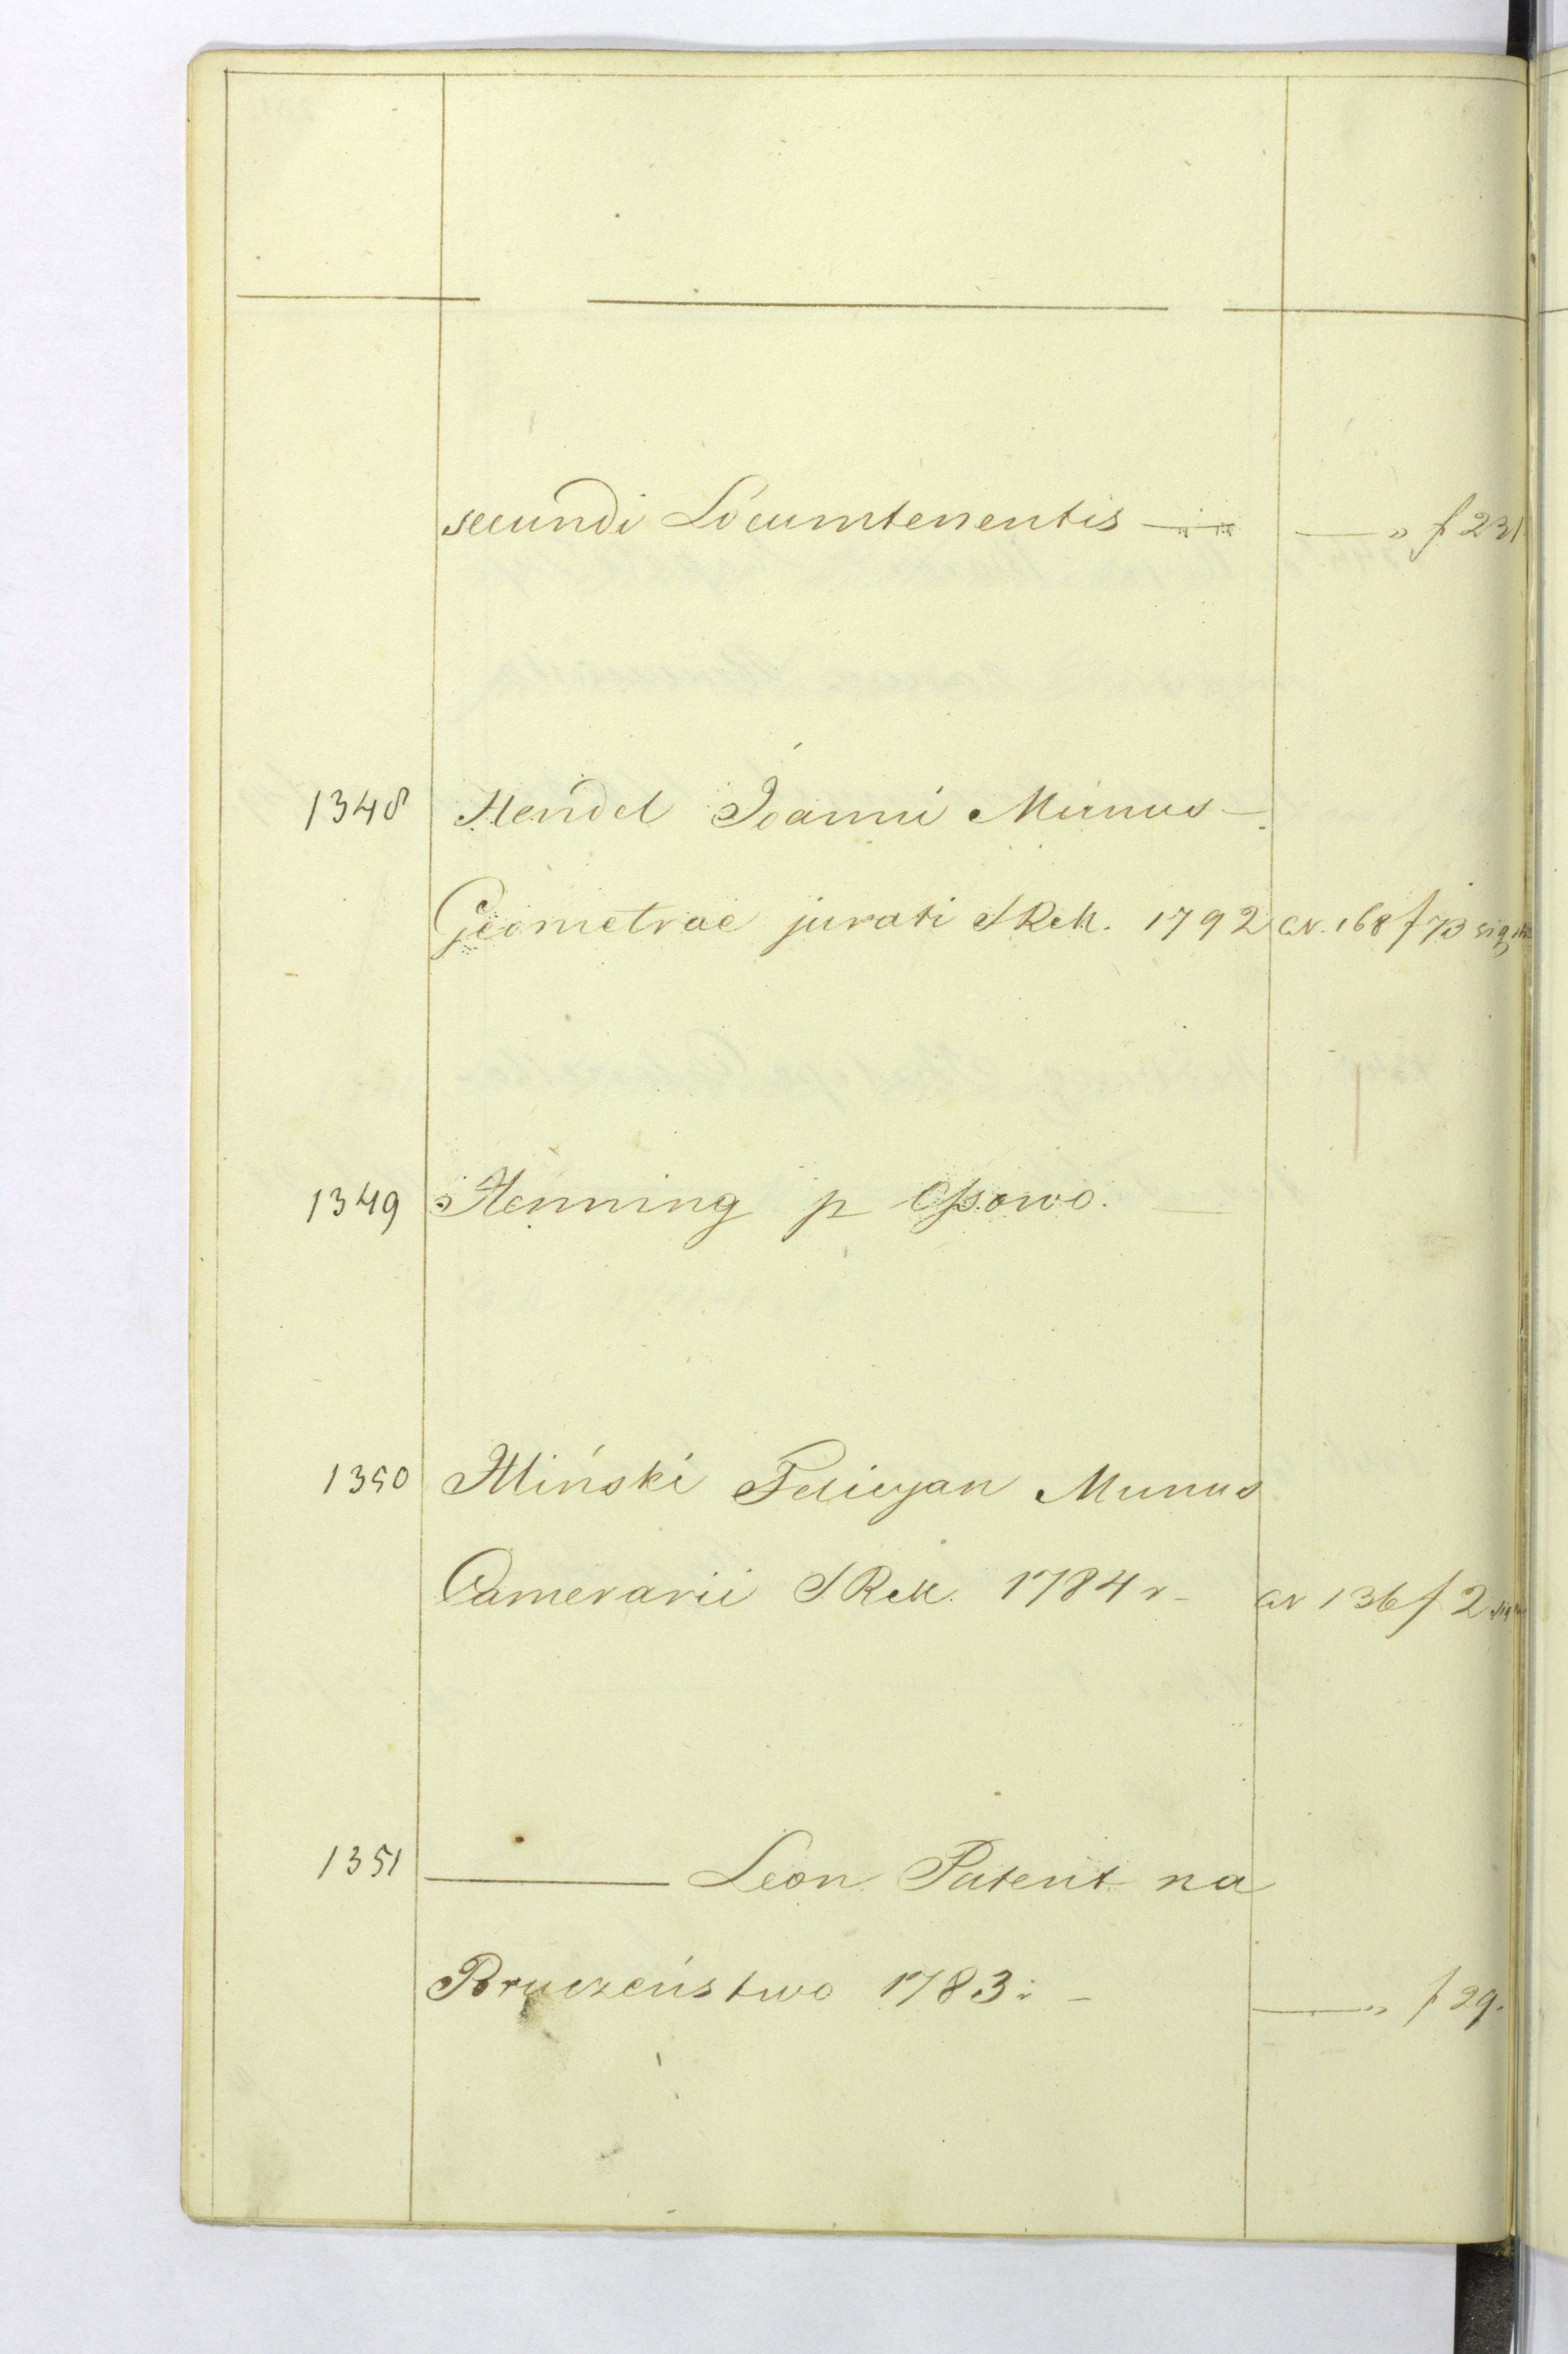 secundi Locumtenentis — — „ f 231
1348 Hendel Joanni Munus –
Geometrae jurati SRM. 1792 CN. 168 f 73 sig
1349 Henning p Ossowo. —
1350 Hliński Felicyan Munus
Camerarii SRM. 1784 r – CN 136 f 2
1351 ——— Leon Patent na
Poruczeństwo 1783 r – — „ f 29.